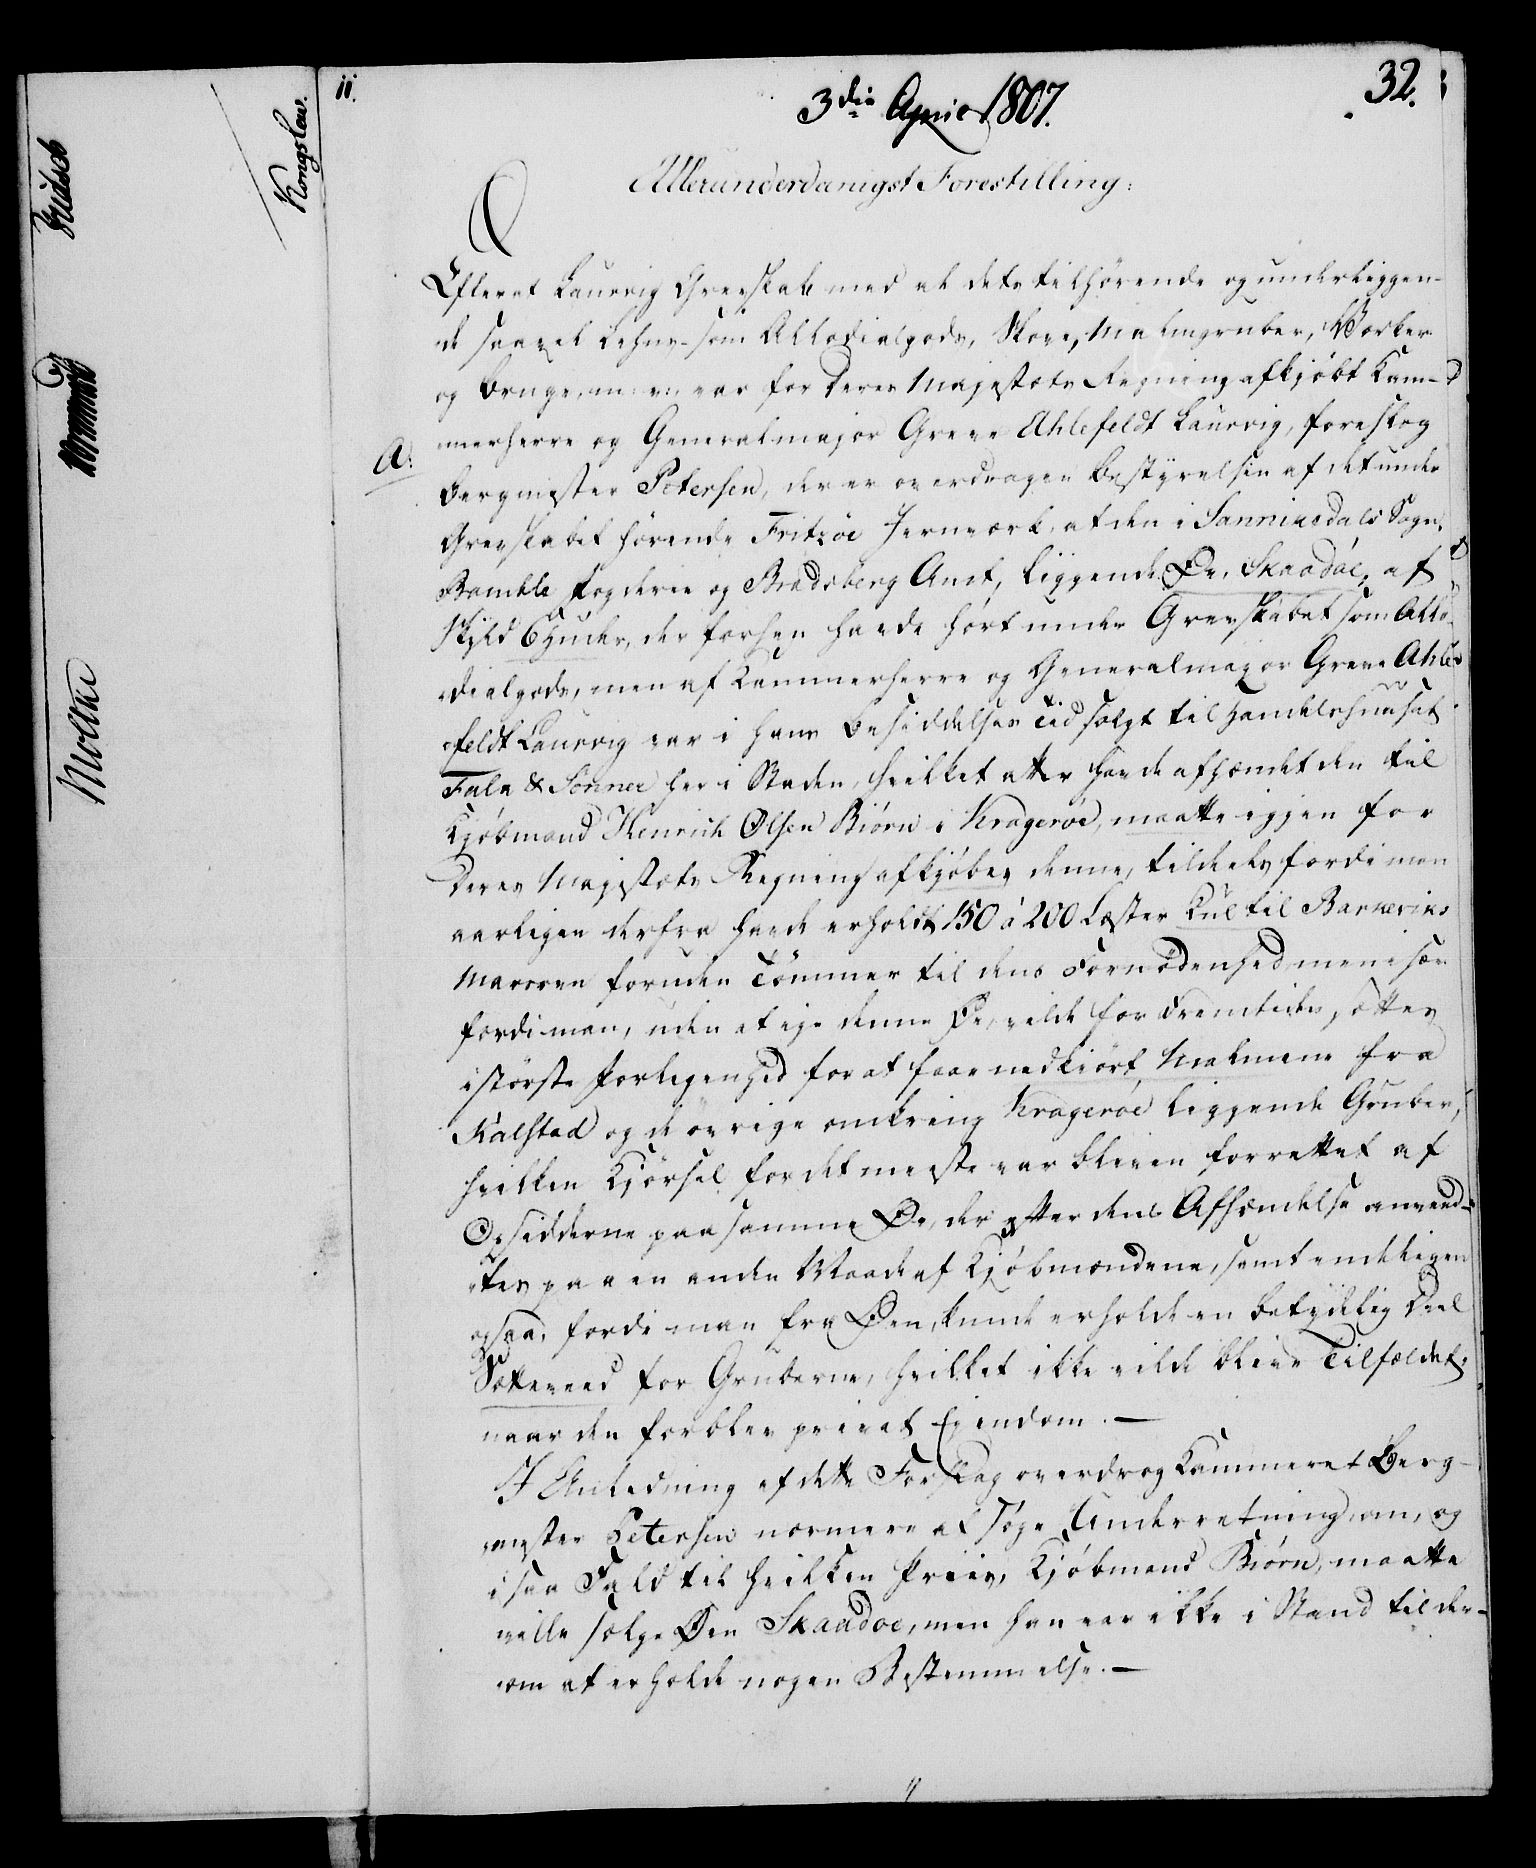 ii.
32.
3die April 1807.
Allerunderdanigst Forestilling:
Kongslew.
Moltke
A:
Efterat Laurvig Grevskab med al dets tilhørende og underliggen-
de saavel Lehns- som Allodialgods, Skove, Malmgruber, Værker
og Bruge, var for Deres Majestæts Regning afkjøbt Kam-
merherre og Generalmajor Greve Ahlefeldt Laurvig, foreslog
Bergmester Petersen, der er overdragen Bestyrelsen af det under
Grevskabet hørende Fritzøe Jernværk, at den i Sannikedals Sogn,
Bamble Fogderie og Bradsberg Amt, liggende Øe, Skaadöe, af
Skyld 6 Huder, der forhen havde hørt under Grevskabet som Allo-
dialgods, men af Kammerherre og Generalmajor Greve Ahle-
feldt Laurvig var i hans Besiddelses Tid solgt til Handelshuuset
Faln & Sönner her i Staden, hvilket atter havde afhændet den til
Kjöbmand Henrich Olsen Biörn i Krageröe, maatte igjen for
Deres Majestæts Regning afkjöbes denne, tildeels fordi man
aarligen derfra havde erholdt 150 à 200 Læster Kul til Barkeviks
Masovn foruden Tömmer til dens Fornödenhed, men især
fordi man, uden at eje denne Øe, vilde for Fremtiden sættes
i störste Forlegenhed for at faae nedkiört Malmene fra
Kalstad og de övrige omkring Krageröe liggende Gruber,
hvilken Kjörsel for det meeste var bleven forrettet af
Opsidderne paa samme Øe, der efter dens Afhændelse anvend-
tes paa en anden Maade af Kjöbmændene, samt endeligen
ogsaa, fordi man fra Øen, kunde erholde en betydelig Deel
Sætteveed for Gruberne, hvilket ikke vilde blive Tilfældet,
naar den forblev privat Ejendom. —
I Anledning af dette Forslag overdrog Kammeret Berg-
mester Petersen nærmere at söge Underretning, om, og
i saa Fald til hvilken Priis, Kjöbmand Biörn, maatte
ville sælge Øen Skaadöe, men han var ikke i Stand til der-
om at erholde nogen Bestemmelse. —